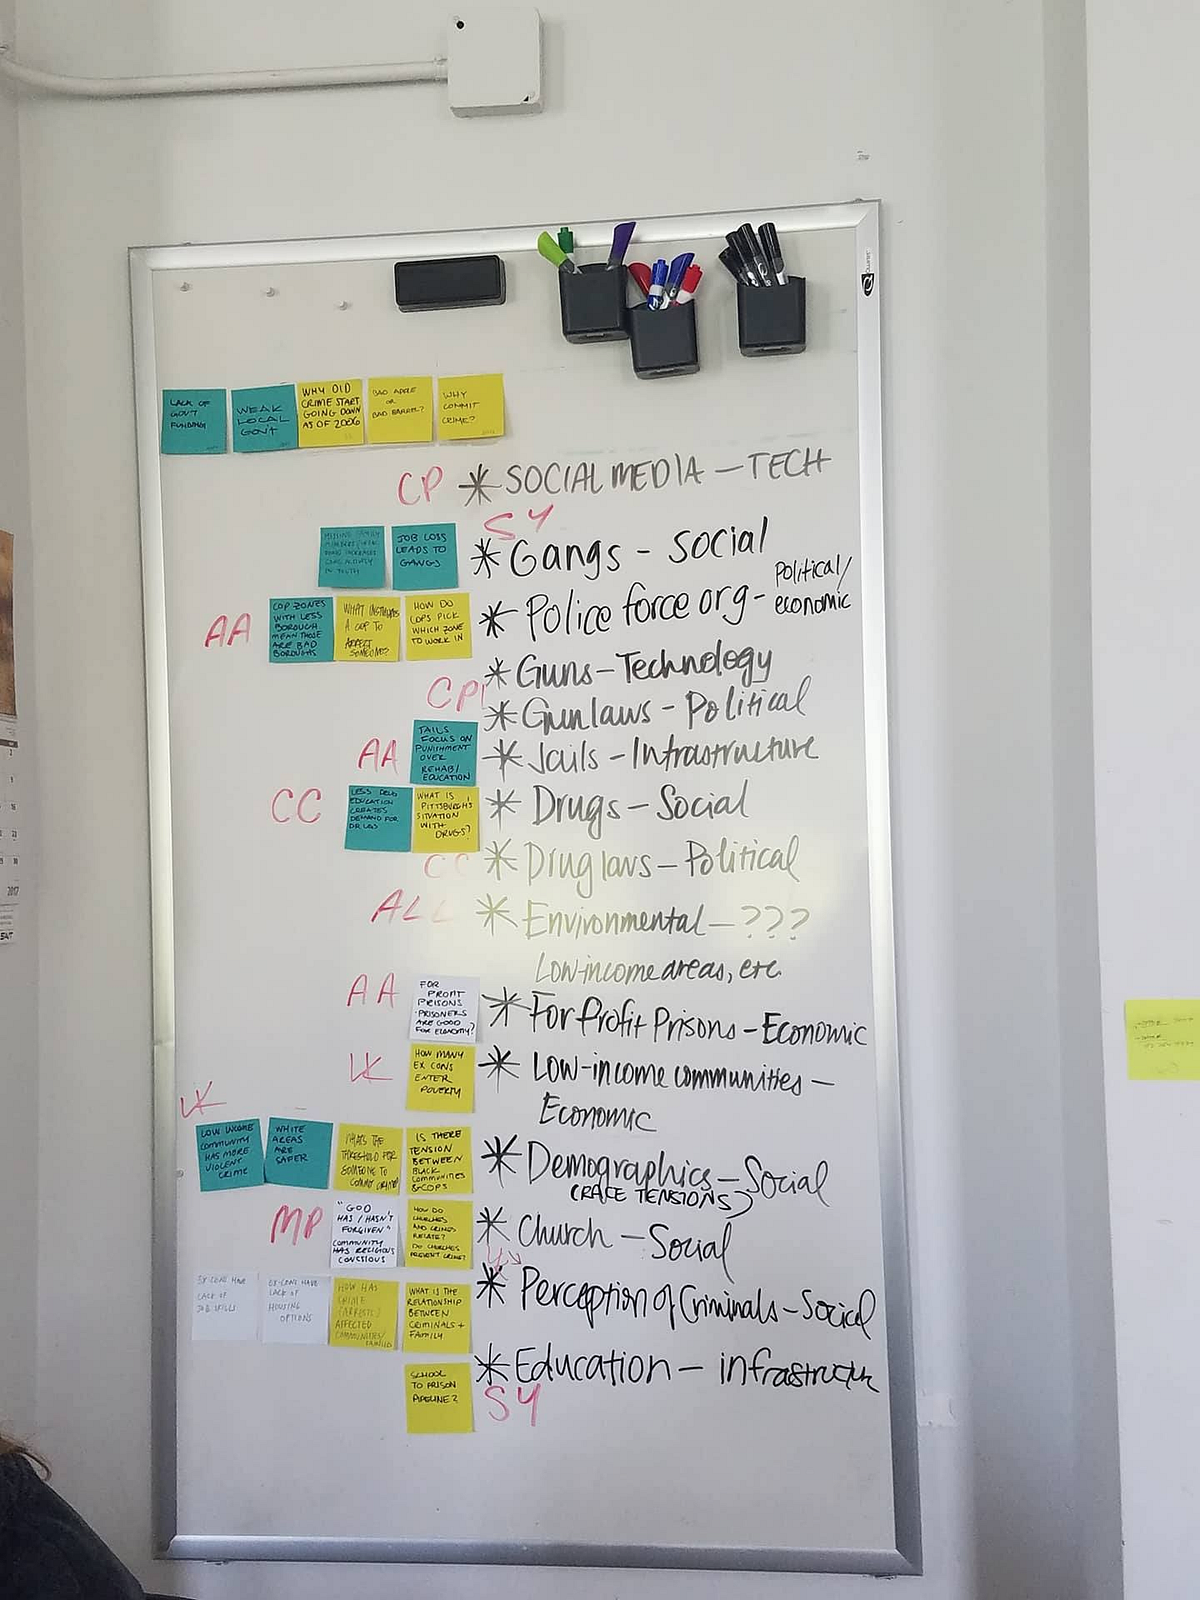 LACK OF
GOV'T
FUNDING
WEAK
LOCAL
GOV'T
WHY DID
CRIME START
GOING DOWN
AS OF 2006
BAD APPLE
OR
BAD BARREL?
WHY
COMMIT
CRIME?
CP * SOCIAL MEDIA - TECH
SY
MISSING FAMILY
IN YOUTH
JOB LOSS
LEADS TO
GANGS
* Gangs - Social
AA
COP ZONES
WITH LESS
BOROUGH
MEAN THOSE
ARE BAD
BOROUGHS
WHAT
A COP TO
ARREST
SOMEONE?
HOW DO
COPS PICK
WHICH ZONE
TO WORK IN
* Police force org - Political/
economic
* Guns - Technology
CP
* Gun laws - Political
AA
JAILS
FOCUS ON
PUNISHMENT
OVER
REHAB/
EDUCATION
* Jails - Infrastructure
CC
LESS DRUG
EDUCATION
CREATES
DEMAND FOR
DRUGS
WHAT IS
PITTSBURGH'S
SITUATION
WITH
DRUGS?
* Drugs - Social
CC * Drug laws - Political
ALL * Environmental - ???
Low-income areas, etc.
AA
FOR
PROFIT
PRISONS
"PRISONERS
ARE GOOD
FOR ECONOMY?
* For Profit Prisons - Economic
LK
HOW MANY
EX CONS
ENTER
POVERTY
* Low-income communities -
Economic
LK
LOW INCOME
COMMUNITY
HAS MORE
VIOLENT
CRIME
WHITE
AREAS
ARE
SAFER
WHATS THE
THRESHOLD FOR
SOMEONE TO
COMMIT CRIME?
IS THERE
TENSION
BETWEEN
BLACK
COMMUNITIES
& COPS
* Demographics - Social
(RACE TENSIONS)
MP
"GOD
HAS/HASN'T
FORGIVEN"
COMMUNITY
HAS RELIGIOUS
CONCIOUS
HOW DO
CHURCHES
AND CRIMES
RELATE?
DO CHURCHES
PREVENT CRIME?
* Church - Social
EX-CONS HAVE
LACK OF
JOB SKILLS
EX-CONS HAVE
LACK OF
HOUSING
OPTIONS
HOW HAS
CRIME
AFFECTED
COMMUNITIES/
FAMILIES
WHAT IS THE
RELATIONSHIP
BETWEEN
CRIMINALS +
FAMILY
* Perception of Criminals - Social
* Education - infrastructure
SCHOOL
TO PRISON
PIPELINE?
SY
2017